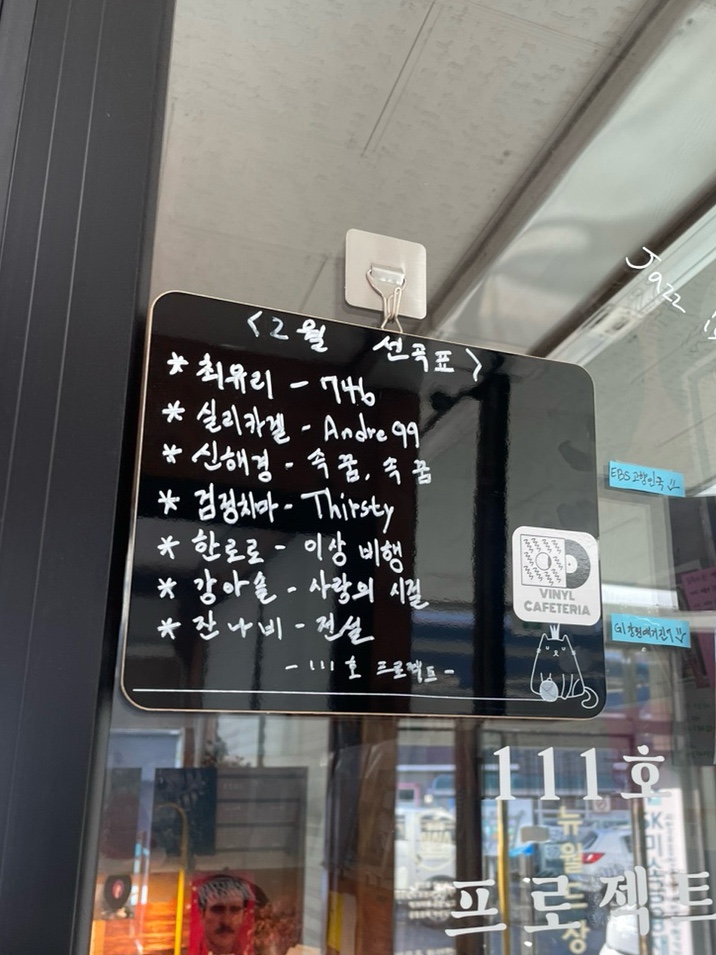 <2월 선곡표>
* 최유리 - 746
* 실리카겔 - Andre99
* 신해경 - 속꿈, 속꿈
* 검정치마 - Thirsty
* 한로로 - 이상 비행
* 강아솔 - 사랑의 시절
* 잔나비 - 전설
- 111호 프로젝트 -
VINYL
CAFETERIA
Jazz
EBS 고향민국
111호
프로젝트
뉴월드장